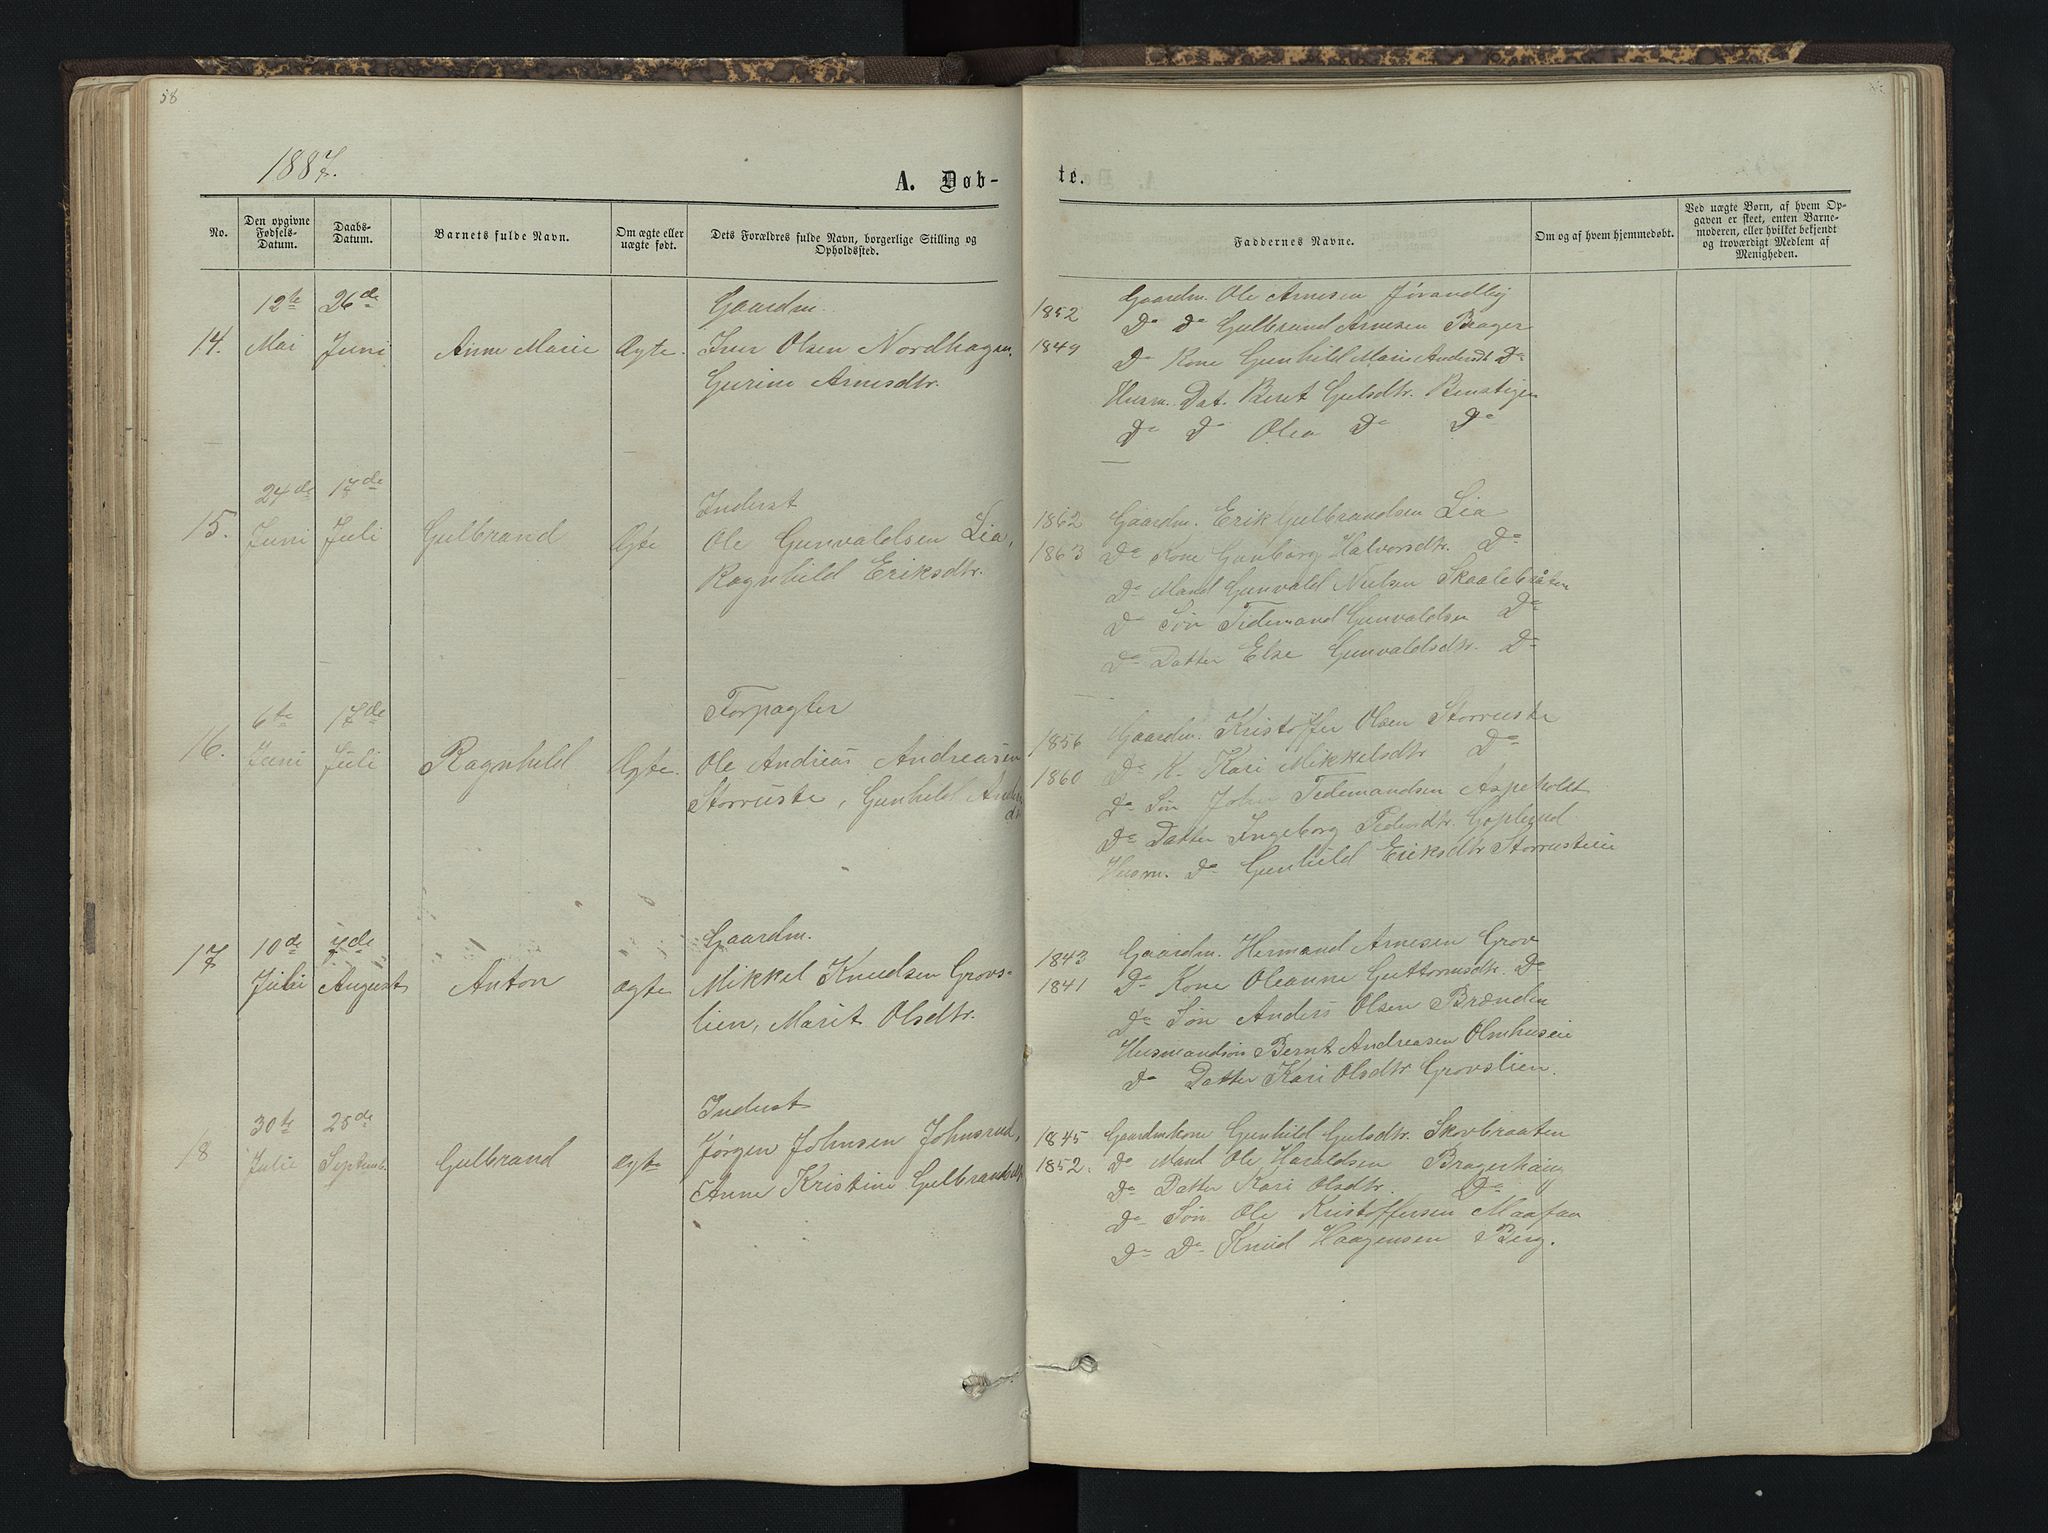 58
1887.
A. Døb-
te.
No.
Den opgivne Fødsels-Datum.
Daabs-Datum.
Barnets fulde Navn.
Om ægte eller uægte født.
Dets Forældres fulde Navn, borgerlige Stilling og Opholdssted.
Faddernes Navne.
Om og af hvem hjemmedøbt.
Ved uægte Børn, af hvem Opgaven er skeet, enten Barnemoderen, eller hvilket bekjendt og troværdigt Medlem af Menigheden.
14.
12te Mai
26de Juni
Anne Marie
Ægte.
Gaardm.
Iver Olsen Nordhagen,
Gurine Arnesdtr.
1852
1849
Gaardm. Ole Arnesen Jørandlig
Do Do Gulbrand Arnesen Brager
Do Kone Gunhild Marie Andersdt Do
Husm. Dat. Beret Gulsdtr. Benstigen
Do Do Olea Do Do
15.
24de Juni
17de Juli
Gulbrand
Ægte
Inderst
Ole Gunvaldsen Lia,
Ragnhild Eriksdtr.
1862
1863
Gaardm. Erik Gulbrandsen Lia
Do Kone Gunborg Halvorsdtr. Do
Do Mand Gunvald Nielsen Skaalebråten
Do Søn Tidemand Gunvaldsen Do
Do Datter Else Gunvaldsdtr. Do
16.
6te Juni
17de Juli
Ragnhild
Ægte.
Forpagter
Ole Andreas Andreasen
Storruste, Gunhild Anders
dtr
1856
1860
Gaardm. Kristoffer Olsen Storruste
Do K. Kari Mikkelsdtr Do
Do Søn John Tidemandsen Aspeholdt
Do Datter Ingeborg Tidemdtr. Goplerud
Husm. Do Gunhild Eriksdtr Storrusteie
17
10de Juli
7de August
Anton
Ægte
Gaardm.
Mikkel Knudsen Grovs-
lien, Marit Olsdtr.
1843
1841
Gaardm. Hermand Arnesen Grov
Do Kone Oleanne Guttormsdtr. Do
Do Søn Anders Olsen Brænden
Husmandsøn Bernt Andreasen Olmhuseie
Do Datter Kari Olsdtr Grovslien.
18
30te Julie
25de Septemb.
Gulbrand
Ægte
Inderst
Jørgen Johnsen Johnsrud,
Anne Kristine Gulbrandsdtr
1845
1852.
Gaardmkone Gunhild Gulsdtr. Skovbraaten
Do Mand Ole Haraldsen Bragerhaug
Do Datter Kari Olsdtr. Do
Do Søn Ole Kristoffersen Maafaa
Do Do Knud Haagensen Berg.